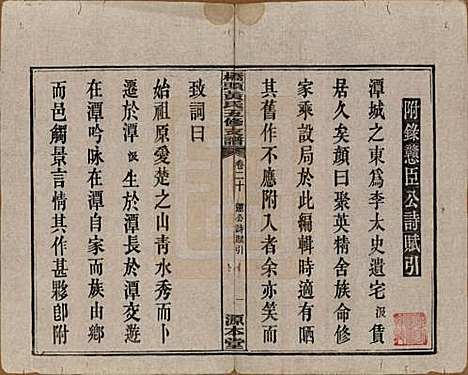 附錄戀臣公詩賦引
潭城之東爲李太史遺宅汲賃
居久矣顏曰聚英精舍族命修
家乘設局於此編輯時適有晒
其舊作不應附入者余亦應以
致詞曰
始祖原愛楚之山青水秀而卜
遷於潭汲生於潭長於潭交遊
在潭吟昹在潭自家而族由鄉
而邑觸景言情其作甚夥卽附
橋頭黃氏五修支譜
卷二十
公詩賦引
一
源本堂